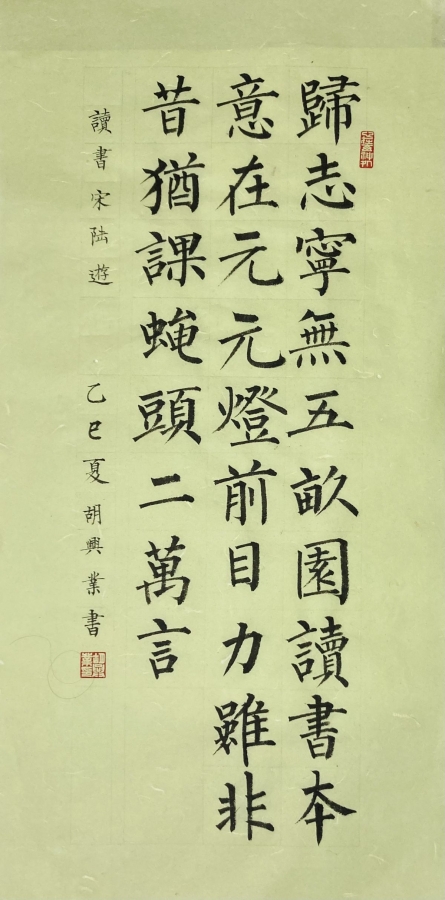 歸志寧無五畝園讀書本
意在元元燈前目力雖非
昔猶課蠅頭二萬言
讀書 宋 陸遊 乙巳夏 胡興業書